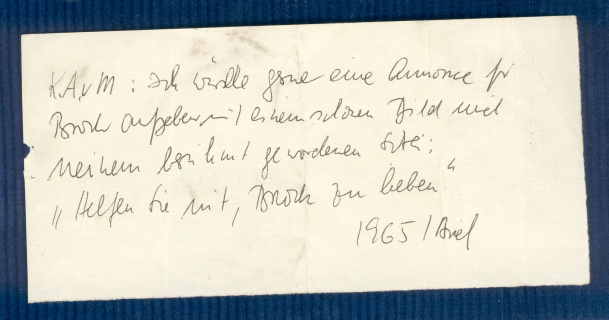 K.A.v.M : Ich würde gerne eine Annonce für
Brock aufgeben, mit einem schönen Bild und
meinem berühmt gewordenen Satz:
„Helfen Sie mit, Brock zu lieben"
1965 /